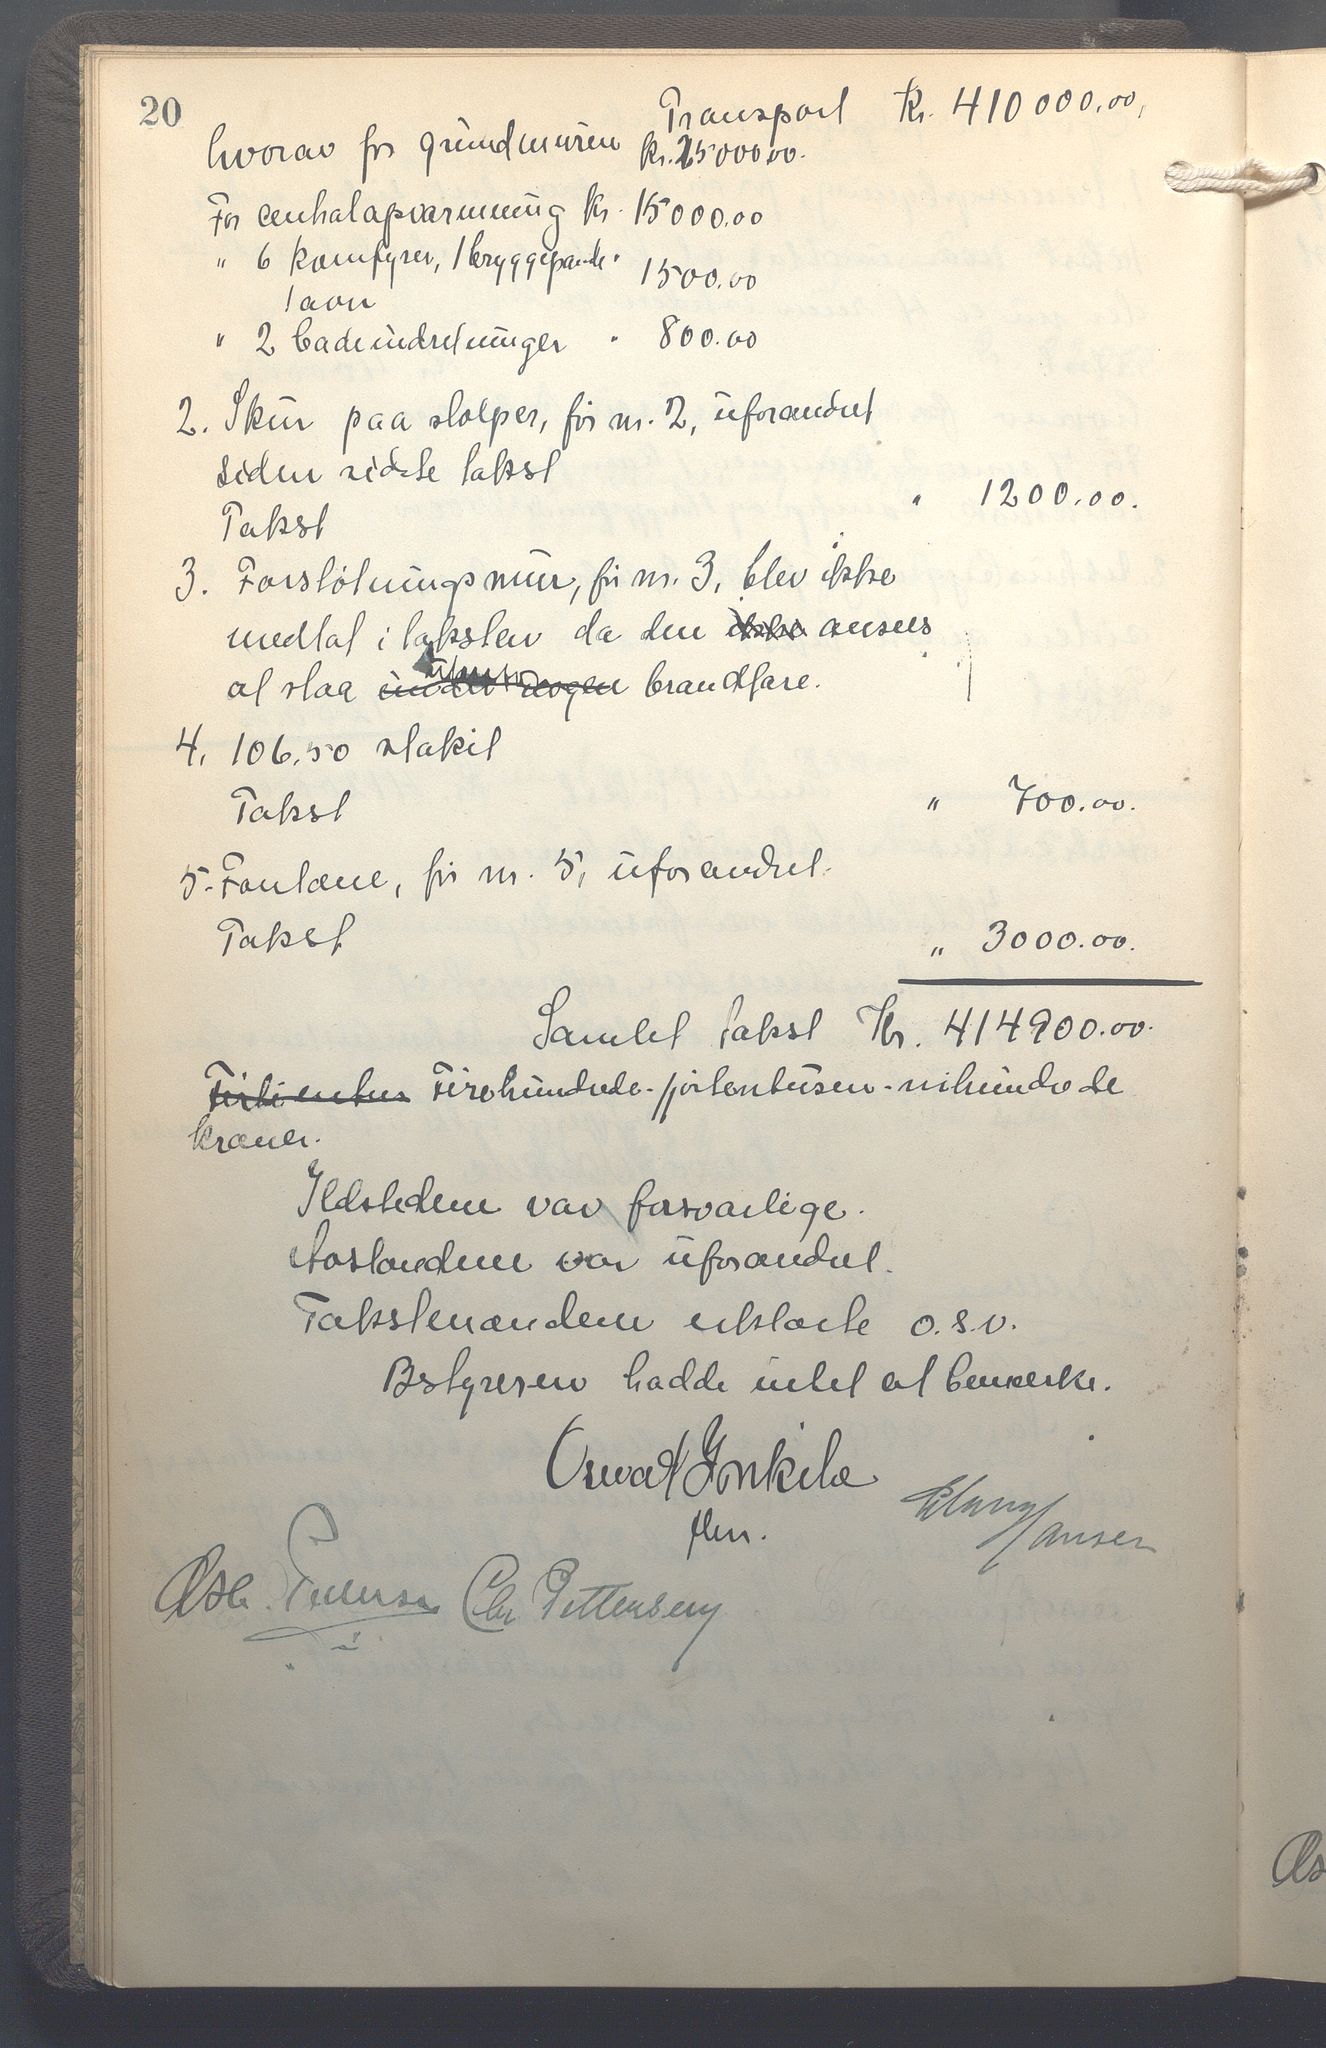 20
Transport Kr. 410000.00.
hvorav for grundmuren kr. 25000.00.
For centralopvarmning kr. 15000.00
" 6 komfyrer, 1 bryggepande " 1500.00
1 ovn
" 2 badeindretninger " 800.00
2. Skur paa stolper, før nr. 2, uforandret
siden sidste takst
Takst " 1200.00.
3. Forstøtningsmur, før nr. 3, blev ikke
medtat i taksten da den ikke ansees
at staa under nogen brandfare.
4. 106.50 stakit
Takst " 700.00.
5. Fontæne, før nr. 5, uforandret.
Takst " 3000.00.
Samlet takst Kr. 414900.00.
Firehundrede-fjortentusen-nihundrede
kroner.
Ildstedene var forsvarlige.
Avstandene var uforandret.
Takstmændene erklærte o.s.v.
Bestyreren hadde intet at bemerke.
Hansen
Chr Pettersen